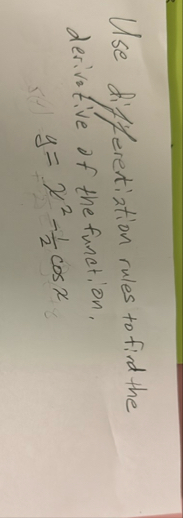 Use differetiation rules to find the
derivative of the function.
y = x² - ½ cos x